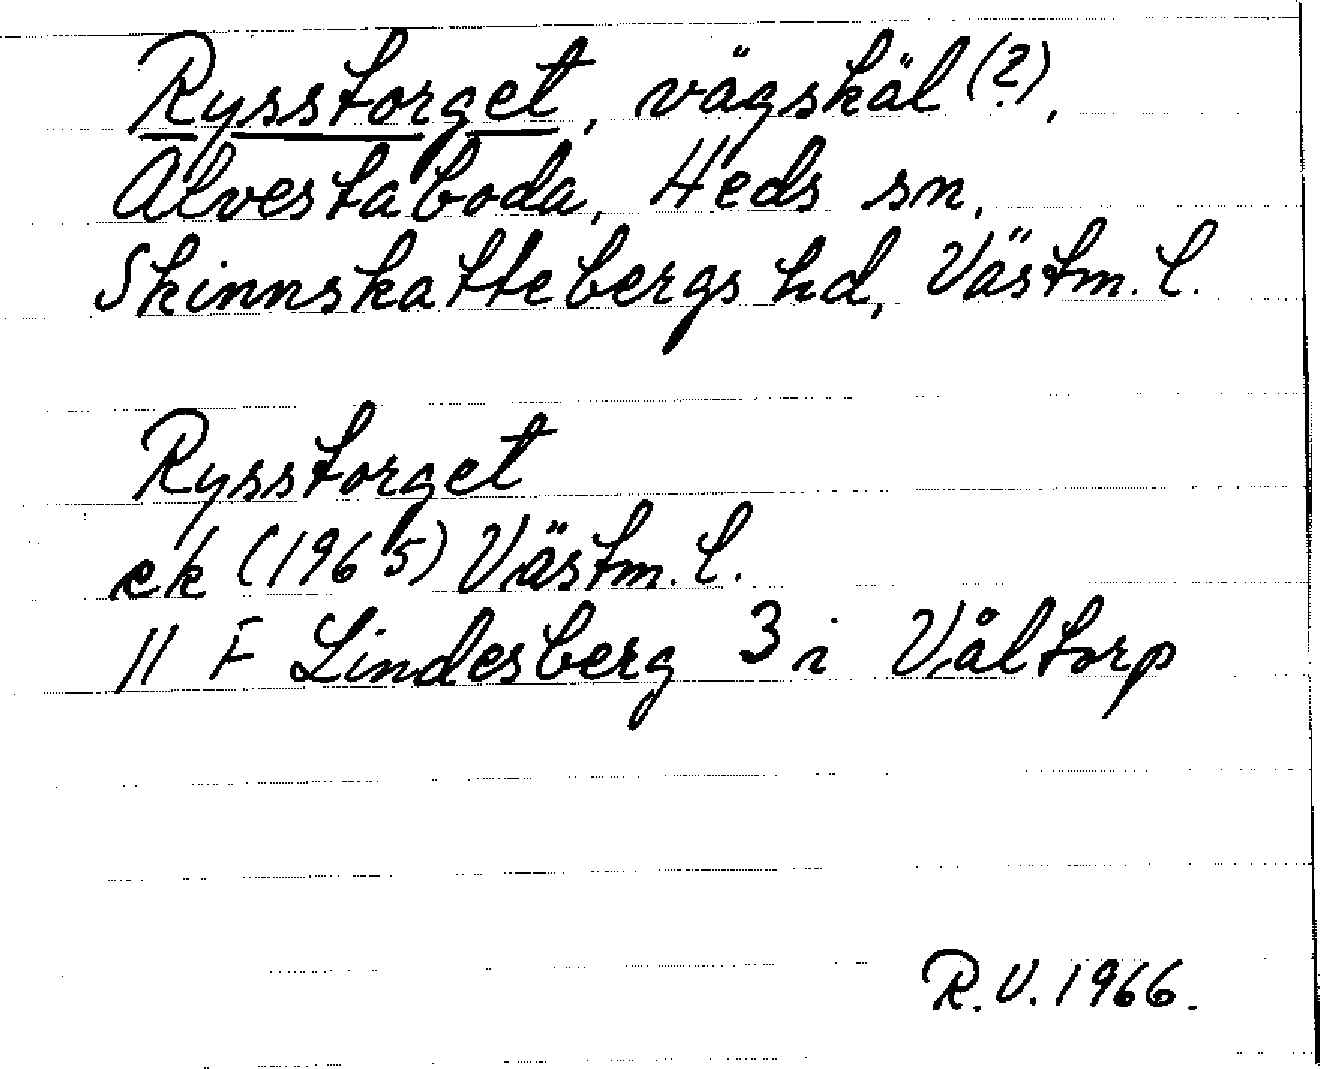 Rysstorget, vägskäl (?),
Alvestaboda, Heds sn,
Skinnskattebergs hd, Västm. l.
Rysstorget
ek (1965) Västm. l.
11 F Lindesberg 3 i Våltorp
R.V. 1966.